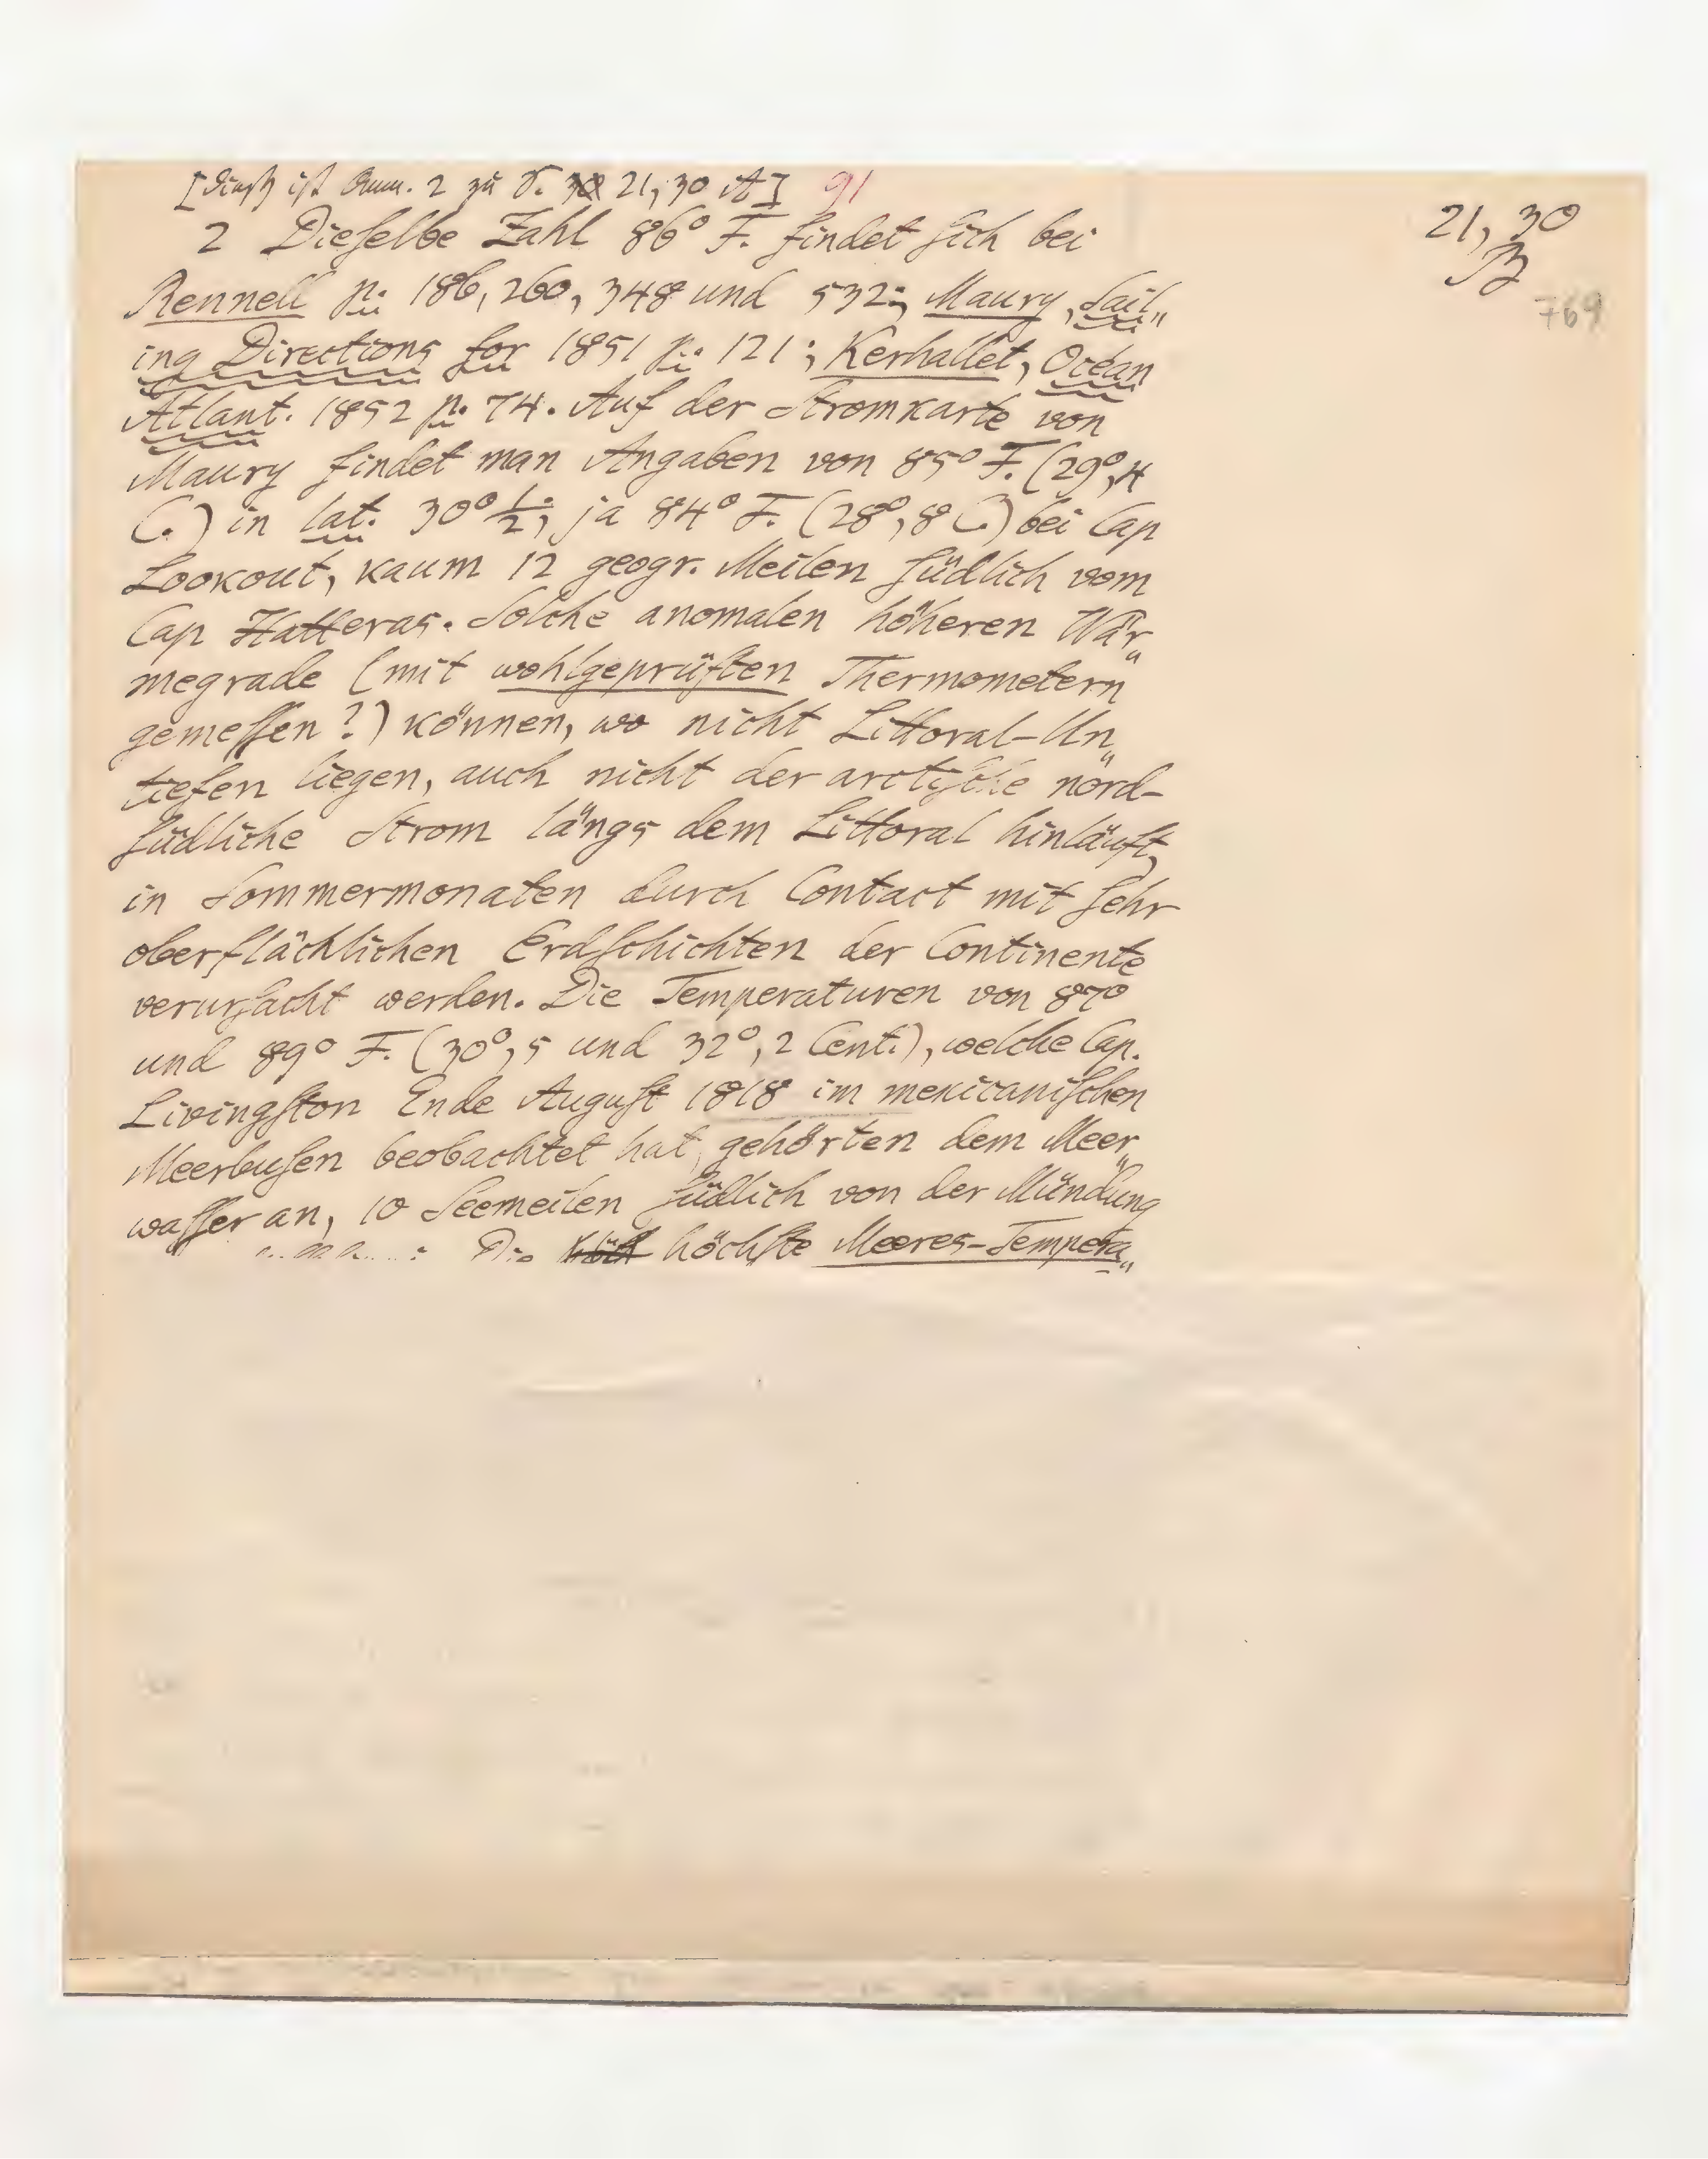 [dieß ist Anm. 2 zu S. 21, 30 A] 91
21, 30
B
769
2 Dieselbe Zahl 86° F. findet sich bei
Rennell p. 186, 260, 348 und 532; Maury, Sail„
ing Directions for 1851 p. 121; Kerhallet, Océan
Atlant. 1852 p. 74. Auf der Stromkarte von
Maury findet man Angaben von 85° F. (29°,4
C.) in lat. 30° 1/2, ja 84° F. (28°,8 C.) bei Cap
Lookout, kaum 12 geogr. Meilen südlich vom
Cap Hatteras. Solche anomalen höheren Wär„
megrade (mit wohlgeprüften Thermometern
gemessen?) können, wo nicht Littoral-Un„
tiefen liegen, auch nicht der arctische nord-
südliche Strom längs dem Littoral hinläuft,
in Sommermonaten durch Contact mit sehr
oberflächlichen Erdschichten der Continente
verursacht werden. Die Temperaturen von 87°
und 89° F. (30°,5 und 32°,2 Cent.), welche Cap.
Livingston Ende August 1818 im mexicanischen
Meerbusen beobachtet hat, gehörten dem Meer„
wasser an, 10 Seemeilen südlich von der Mündung
Die höchste Meeres-Tempera„